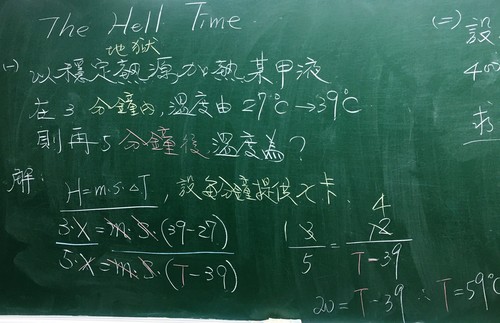 The Hell Time.
地獄
(一) 以穩定熱源加熱某甲液
在3分鐘內,溫度由27℃→39℃
則再5分鐘後,溫度為?
解: H=m·s·ΔT, 設每分鐘提供X卡.
3·X=m·S·(39-27)
5·X=m·S·(T-39)
1 3 / 5 = 4 12 / T-39
20=T-39 ∴ T=59℃
(二) 設
400
求